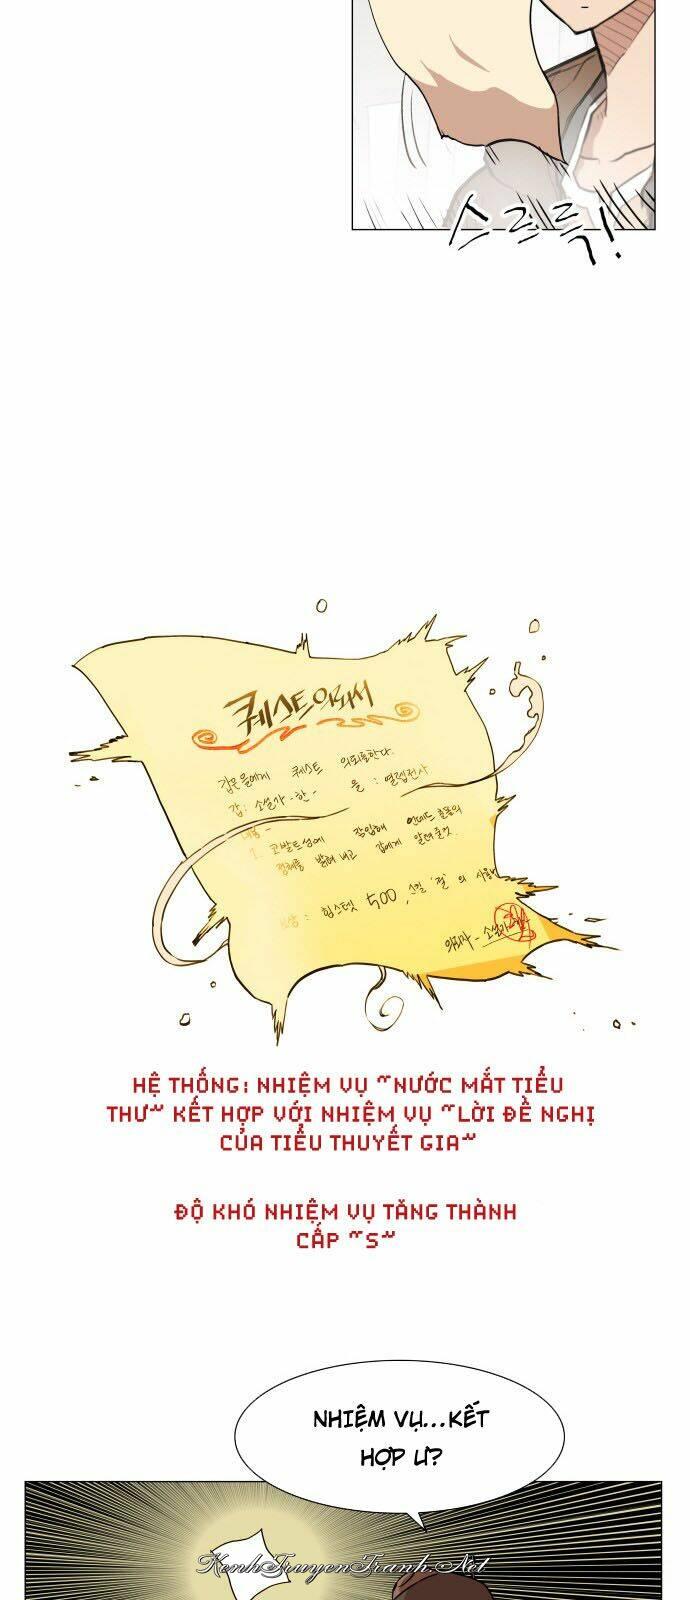 스르륵!
퀘스트의뢰서
갑은 을에게 퀘스트 의뢰를한다.
갑: 소설가-한- 을: 열렙전사
내용-
1. 코발트성에 잠입해 언데드 출몰의
정체를 밝혀내고 갑에게 알려줄것.
보상: 힘스텟 500, 스킬 '절'의 사용
의뢰자-소설가
HỆ THỐNG: NHIỆM VỤ "NƯỚC MẮT TIỂU
THƯ" KẾT HỢP VỚI NHIỆM VỤ "LỜI ĐỀ NGHỊ
CỦA TIỂU THUYẾT GIA"
ĐỘ KHÓ NHIỆM VỤ TĂNG THÀNH
CẤP "S"
NHIỆM VỤ...KẾT
HỢP Ư?
KenhTruyenTranh.Net